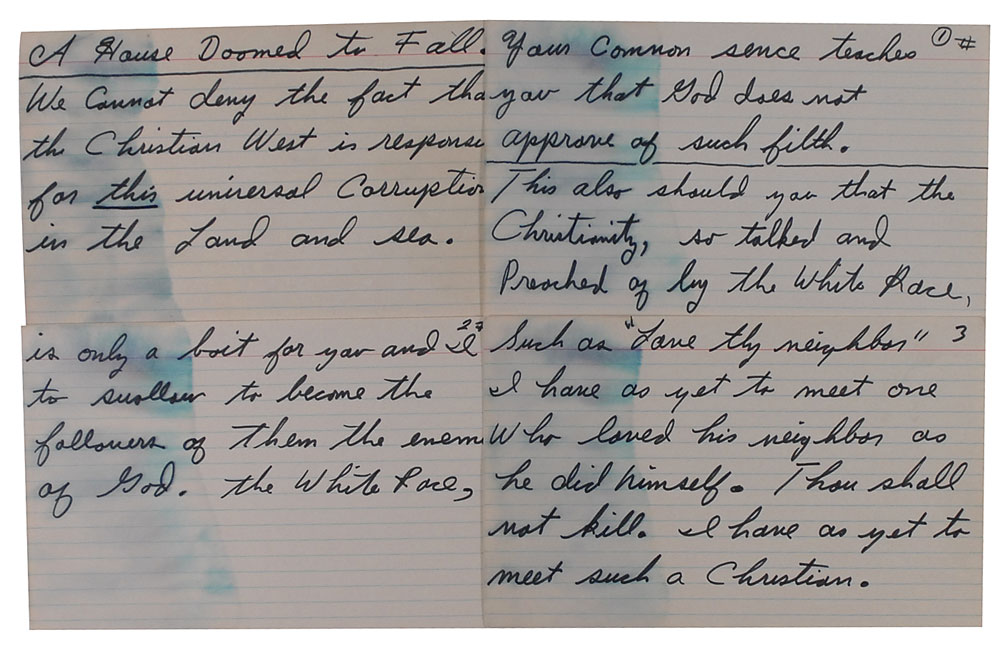 A House Doomed to Fall.
We Cannot deny the fact tha
the Christian West is responsi
for this universal Corruption
in the Land and sea.
① #
Your Common sence teaches
you that God does not
approve of such filth.
This also should you that the
Christinity, so talked and
Preached of by the White Race,
2#
is only a bait for you and I
to swallow to become the
followers of them the enem
of God. the White Race,
3
Such as "Love thy neighbor"
I have as yet to meet one
Who loved his neighbor as
he did himself. Thou shall
not kill. I have as yet to
meet such a Christian.